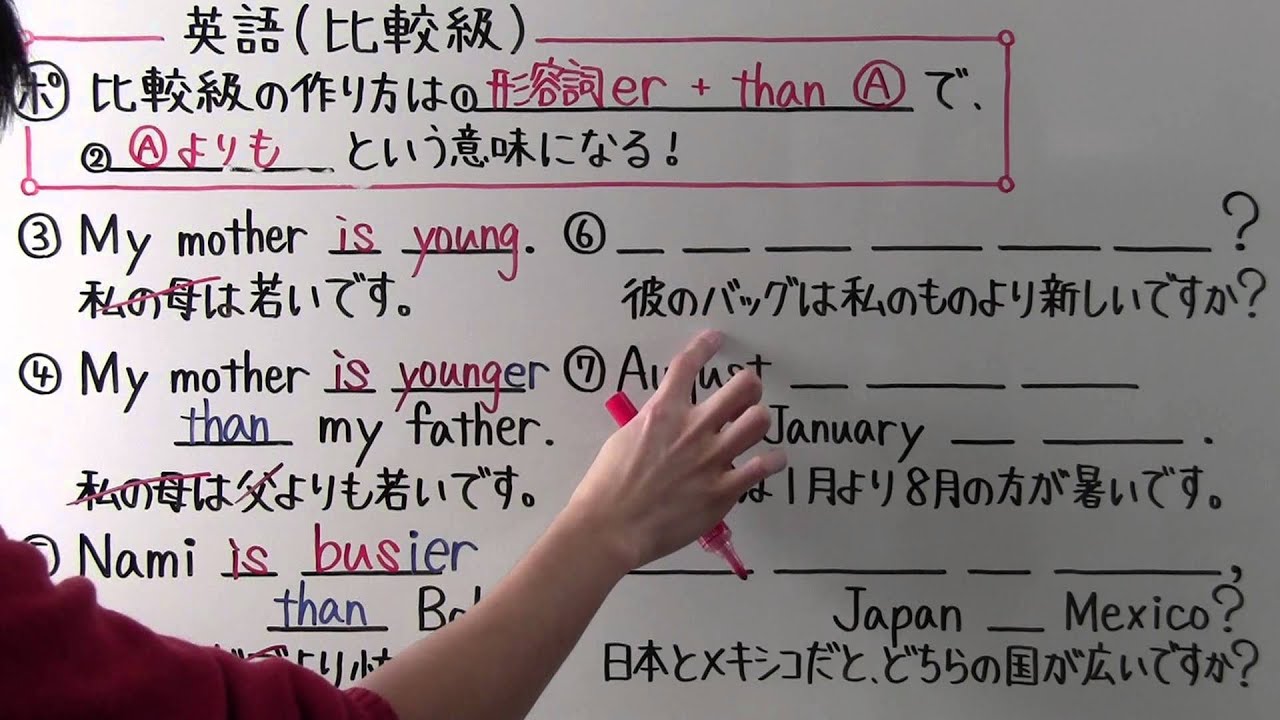 英語(比較級)
ポ 比較級の作り方は①形容詞er + than Ⓐ で、
②Ⓐよりも という意味になる!
③ My mother is young.
私の母は若いです。
④ My mother is younger
than my father.
私の母は父よりも若いです。
Nami is busier
than
より
⑥ ?
彼のバッグは私のものより新しいですか?
⑦ August
January .
は1月より8月の方が暑いです。
,
Japan Mexico?
日本とメキシコだと、どちらの国が広いですか?